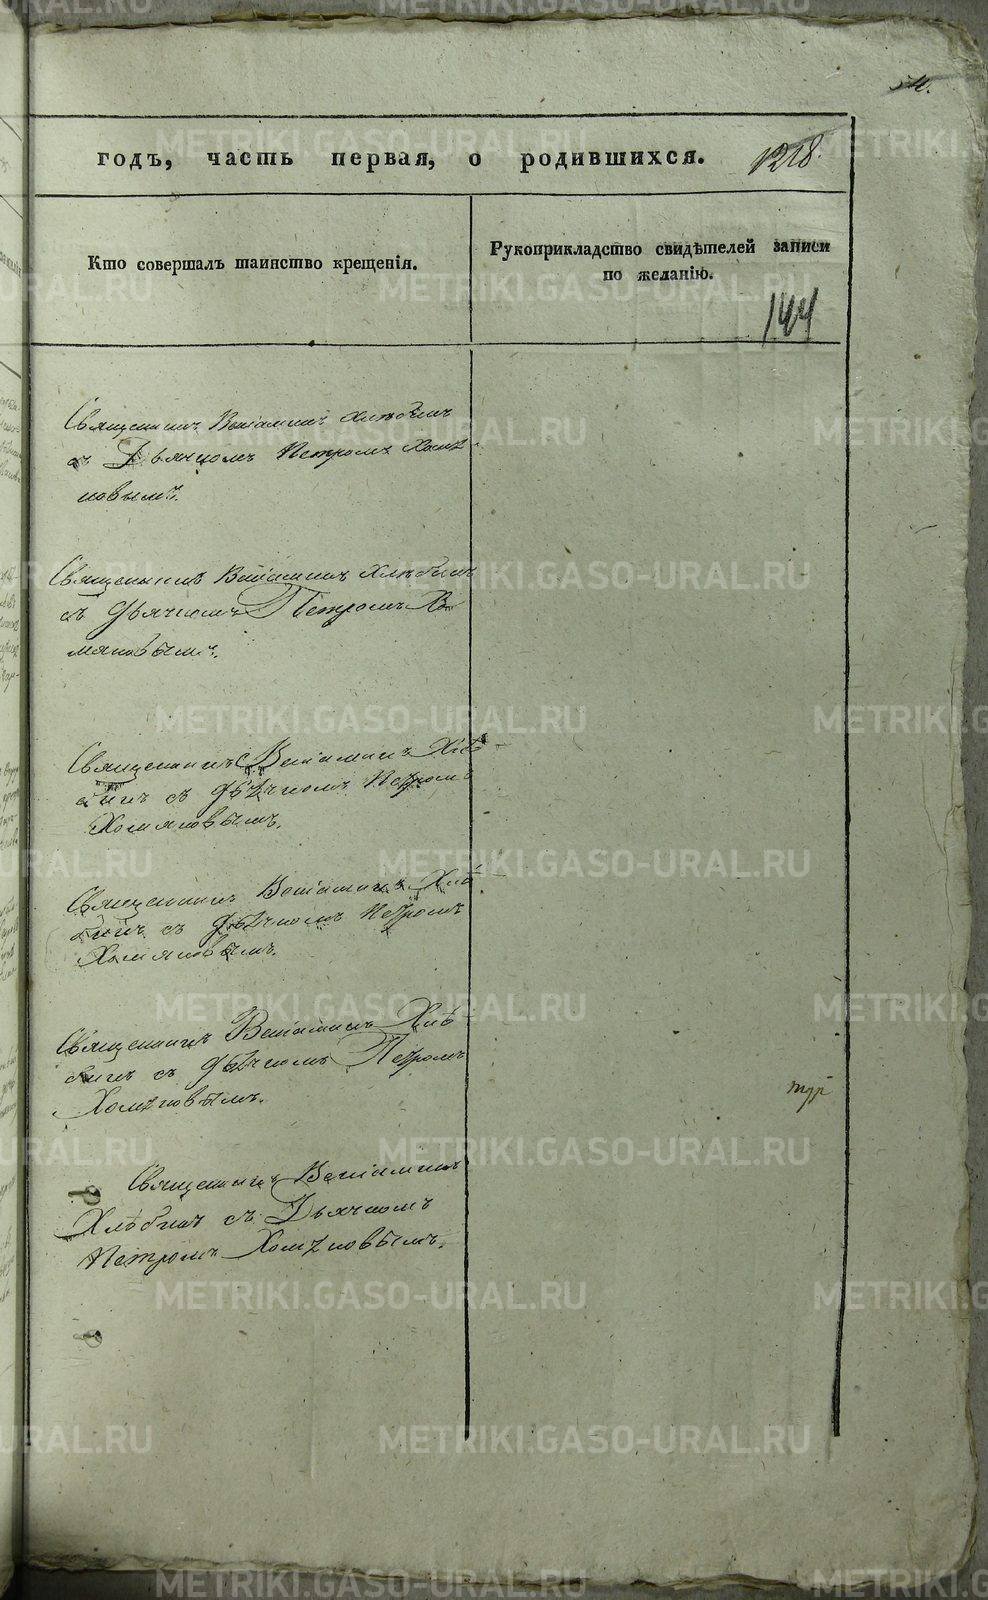 54.
годъ, часть первая, о родившихся. 1218.
Кто совершалъ таинство крещенія.
Рукоприкладство свидѣтелей записи
по желанію.
144
Священникъ Веніаминъ Хлѣбинъ
съ Дьячкомъ Петромъ Хомя-
ковымъ.
Священникъ Веніаминъ Хлѣбинъ
съ Дьячкомъ Петромъ Хо-
мяковымъ.
Священникъ Веніаминъ Хлѣ-
бинъ съ Дьячкомъ Петромъ
Хомяковымъ.
Священникъ Веніаминъ Хлѣ-
бинъ съ Дьячкомъ Петромъ
Хомяковымъ.
Священникъ Веніаминъ Хлѣ-
бинъ съ Дьячкомъ Петромъ
Хомяковымъ.
Священникъ Веніаминъ
Хлѣбинъ съ Дьячкомъ
Петромъ Хомяковымъ.
METRIKI.GASO-URAL.RU